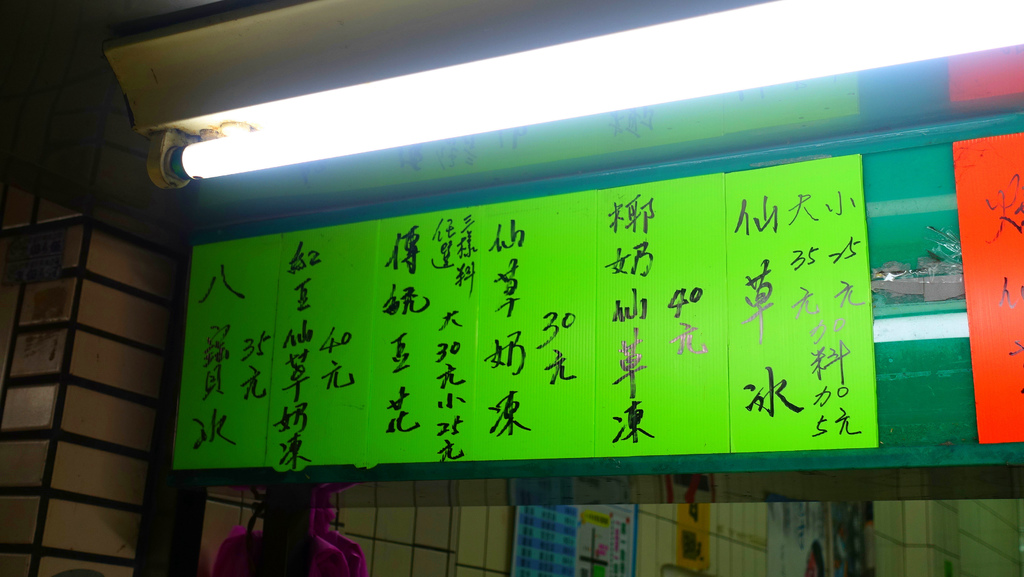 仙草冰
大35元加料加5元
小25元
椰奶仙草凍
40元
仙草奶凍
30元
三樣料
任選
大30元小25元
傳統豆花
紅豆仙草奶凍
40元
八寶冰
35元